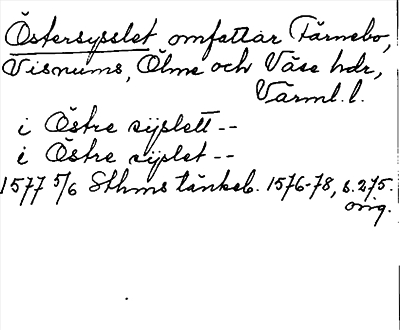 Östersysslet omfattar Färnebo,
Visnums, Ölme och Väse hdr,
Värml. l.
i Östre sÿslett --
i Östre sÿslet --
1577 5/6 Sthms tänkeb. 1576-78, s. 275.
orig.